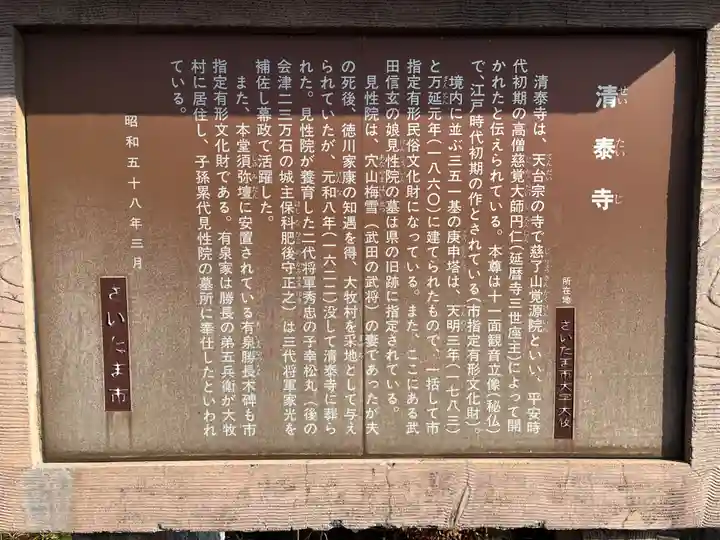 清泰寺
所在地 さいたま市大字大牧
清泰寺は、天台宗の寺で慈了山覚源院といい、平安時
代初期の高僧慈覚大師円仁(延暦寺三世座主)によって開
かれたと伝えられている。本尊は十一面観音立像(秘仏)
で、江戸時代初期の作とされている(市指定有形文化財)。
境内に並ぶ三五一基の庚申塔は、天明三年(一七八三)
と万延元年(一八六〇)に建てられたもので、一括して市
指定有形民俗文化財になっている。また、ここにある武
田信玄の娘見性院の墓は県の旧跡に指定されている。
見性院は、穴山梅雪(武田の武将)の妻であったが夫
の死後、徳川家康の知遇を得、大牧村を采地として与え
られていたが、元和八年(一六二二)没して清泰寺に葬ら
れた。見性院が養育した二代将軍秀忠の子幸松丸(後の
会津二三万石の城主保科肥後守正之)は三代将軍家光を
補佐し幕政で活躍した。
また、本堂須弥壇に安置されている有泉勝長木碑も市
指定有形文化財である。有泉家は勝長の弟五兵衛が大牧
村に居住し、子孫累代見性院の墓所に奉仕したといわれ
ている。
昭和五十八年三月
さいたま市